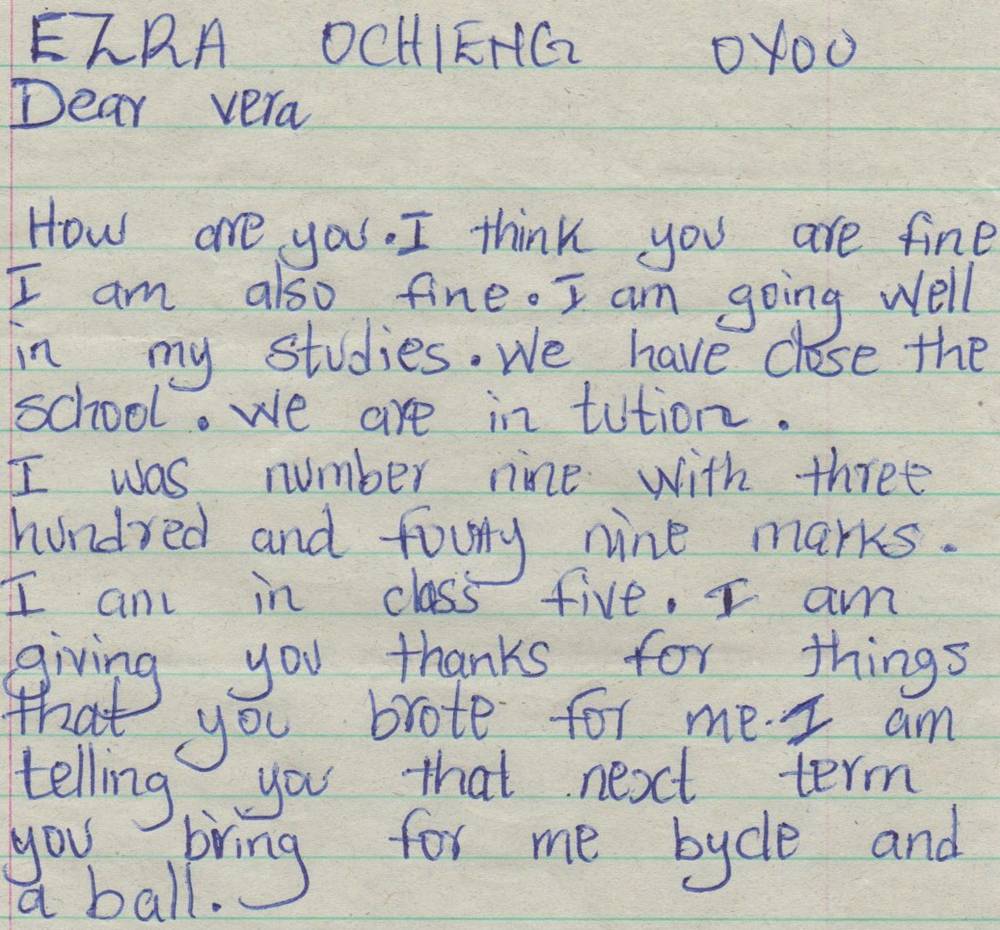 EZRA OCHIENG OYOO
Dear vera
How are you. I think you are fine
I am also fine. I am going well
in my studies. We have close the
school. We are in tution.
I was number nine with three
hundred and fourty nine marks.
I am in class five. I am
giving you thanks for things
that you brote for me. I am
telling you that next term
you bring for me bycle and
a ball.